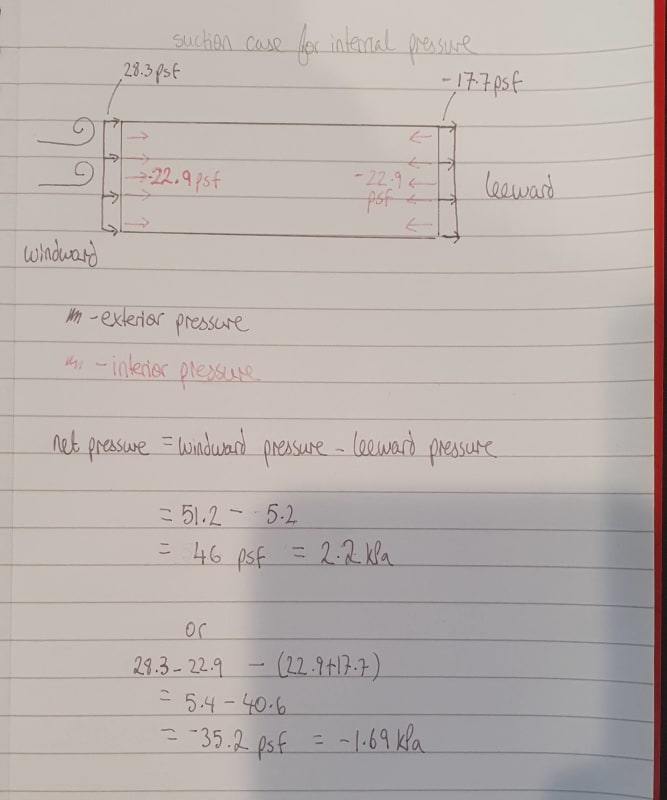 suction case for internal pressure
28.3 psf
-17.7 psf
-22.9 psf
-22.9
psf
leeward
windward
- exterior pressure
- interior pressure
net pressure = windward pressure - leeward pressure
= 51.2 - 5.2
= 46 psf = 2.2 kPa
or
28.3 - 22.9 - (22.9+17.7)
= 5.4 - 40.6
= -35.2 psf = -1.69 kPa